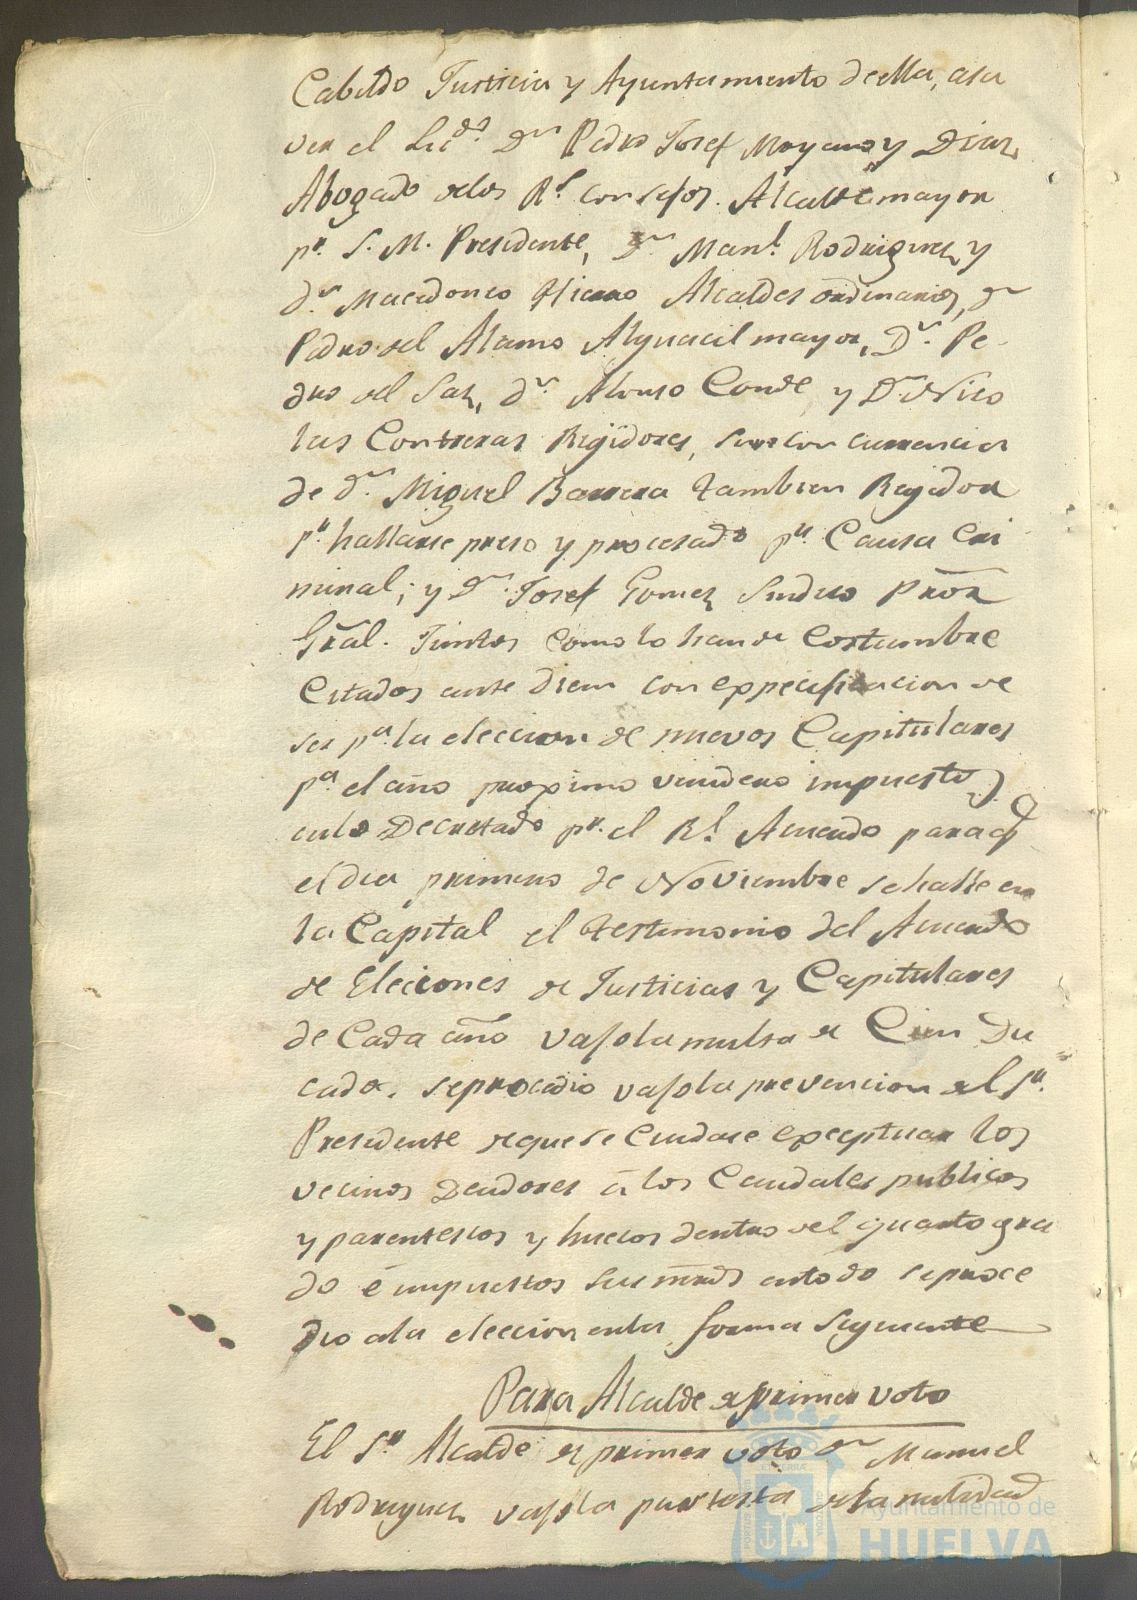 Cabildo Justicia y Ayuntamiento deella, asa
ver el Licdo. Dn Pedro Josef Moyano y Diaz
Abogado delos Rs. consejos. Alcalde mayor
pr. S. M. Presidente, Dn Manl. Rodriguez y
dn Macedonio Hierro Alcaldes ordinarios, dn
Pedro del Alamo Alguacil mayor, Dn. Pe-
dro del Saz, dn. Alonso Conde y Dn Nico
las Contreras Regidores, sin concurrencia
de dn. Miguel Barrera tambien Regidor
pr. hallarse preso y procesado pr. Causa Cri
minal; y Dn. Josef Gomez Sindico Pror
Gral. Juntos como lo han de costumbre
Citados ante diem con expecificacion de
ser pa. la eleccion de nuevos Capitulares
pa el año proximo venidero impuestos
enlo Decretado pr. el Rl. Acuerdo para q
el dia primero de Noviembre sehalle en
la Capital el testimonio del Acuerdo
de Eleciones de Justicias y Capitulares
de Cada año vajola multa de Cien Du
cados. seprocedio vajola prevencion del Sr.
Presidente deque se Cuidase exceptuar los
vecinos Deudores á los Caudales publicos
y parentescos y huecos dentro del quarto gra
do é impuestos sus mrds entodo seproce
dio ala eleccion enla forma siguiente
Para Alcalde de primer voto
El Sr Alcalde de primer voto dn Manuel
Rodriguez vajola protesta dela nulidad
Ayuntamiento de
HUELVA